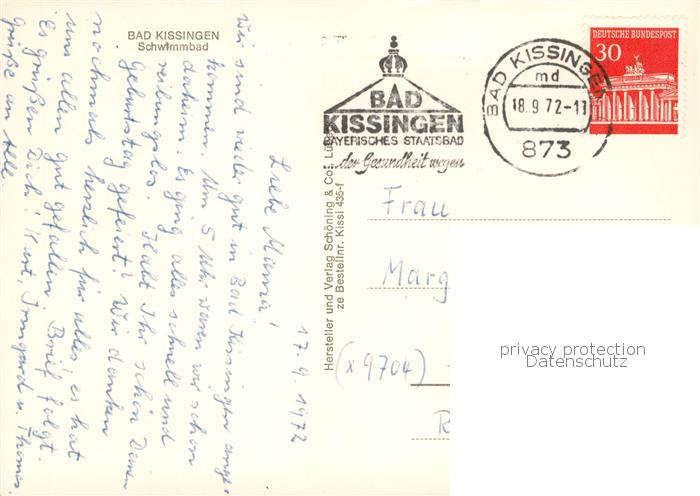 BAD KISSINGEN
Schwimmbad
17.9.1972
Liebe Mama!
Wir sind wieder gut in Bad Kissingen ange-
kommen. Um 5 Uhr waren wir schon
daheim. Es ging alles schnell und
reibungslos. Habt Ihr schön Deinen
Geburtstag gefeiert? Wir danken
nochmals herzlich für alles, es hat
uns allen gut gefallen. Brief folgt.
Es grüßen Dich! Kurt, Irmgard u. Thomas
Grüße an alle.
Hersteller und Verlag Schöning & Co., Lübe
ze Bestellnr. Kissi 435-f
BAD
KISSINGEN
BAYERISCHES STAATSBAD
der Gesundheit wegen
BAD KISSINGEN
md
18.9.72-11
873
DEUTSCHE BUNDESPOST
30
Frau
Marg
(x 9704)
R
privacy protection
Datenschutz